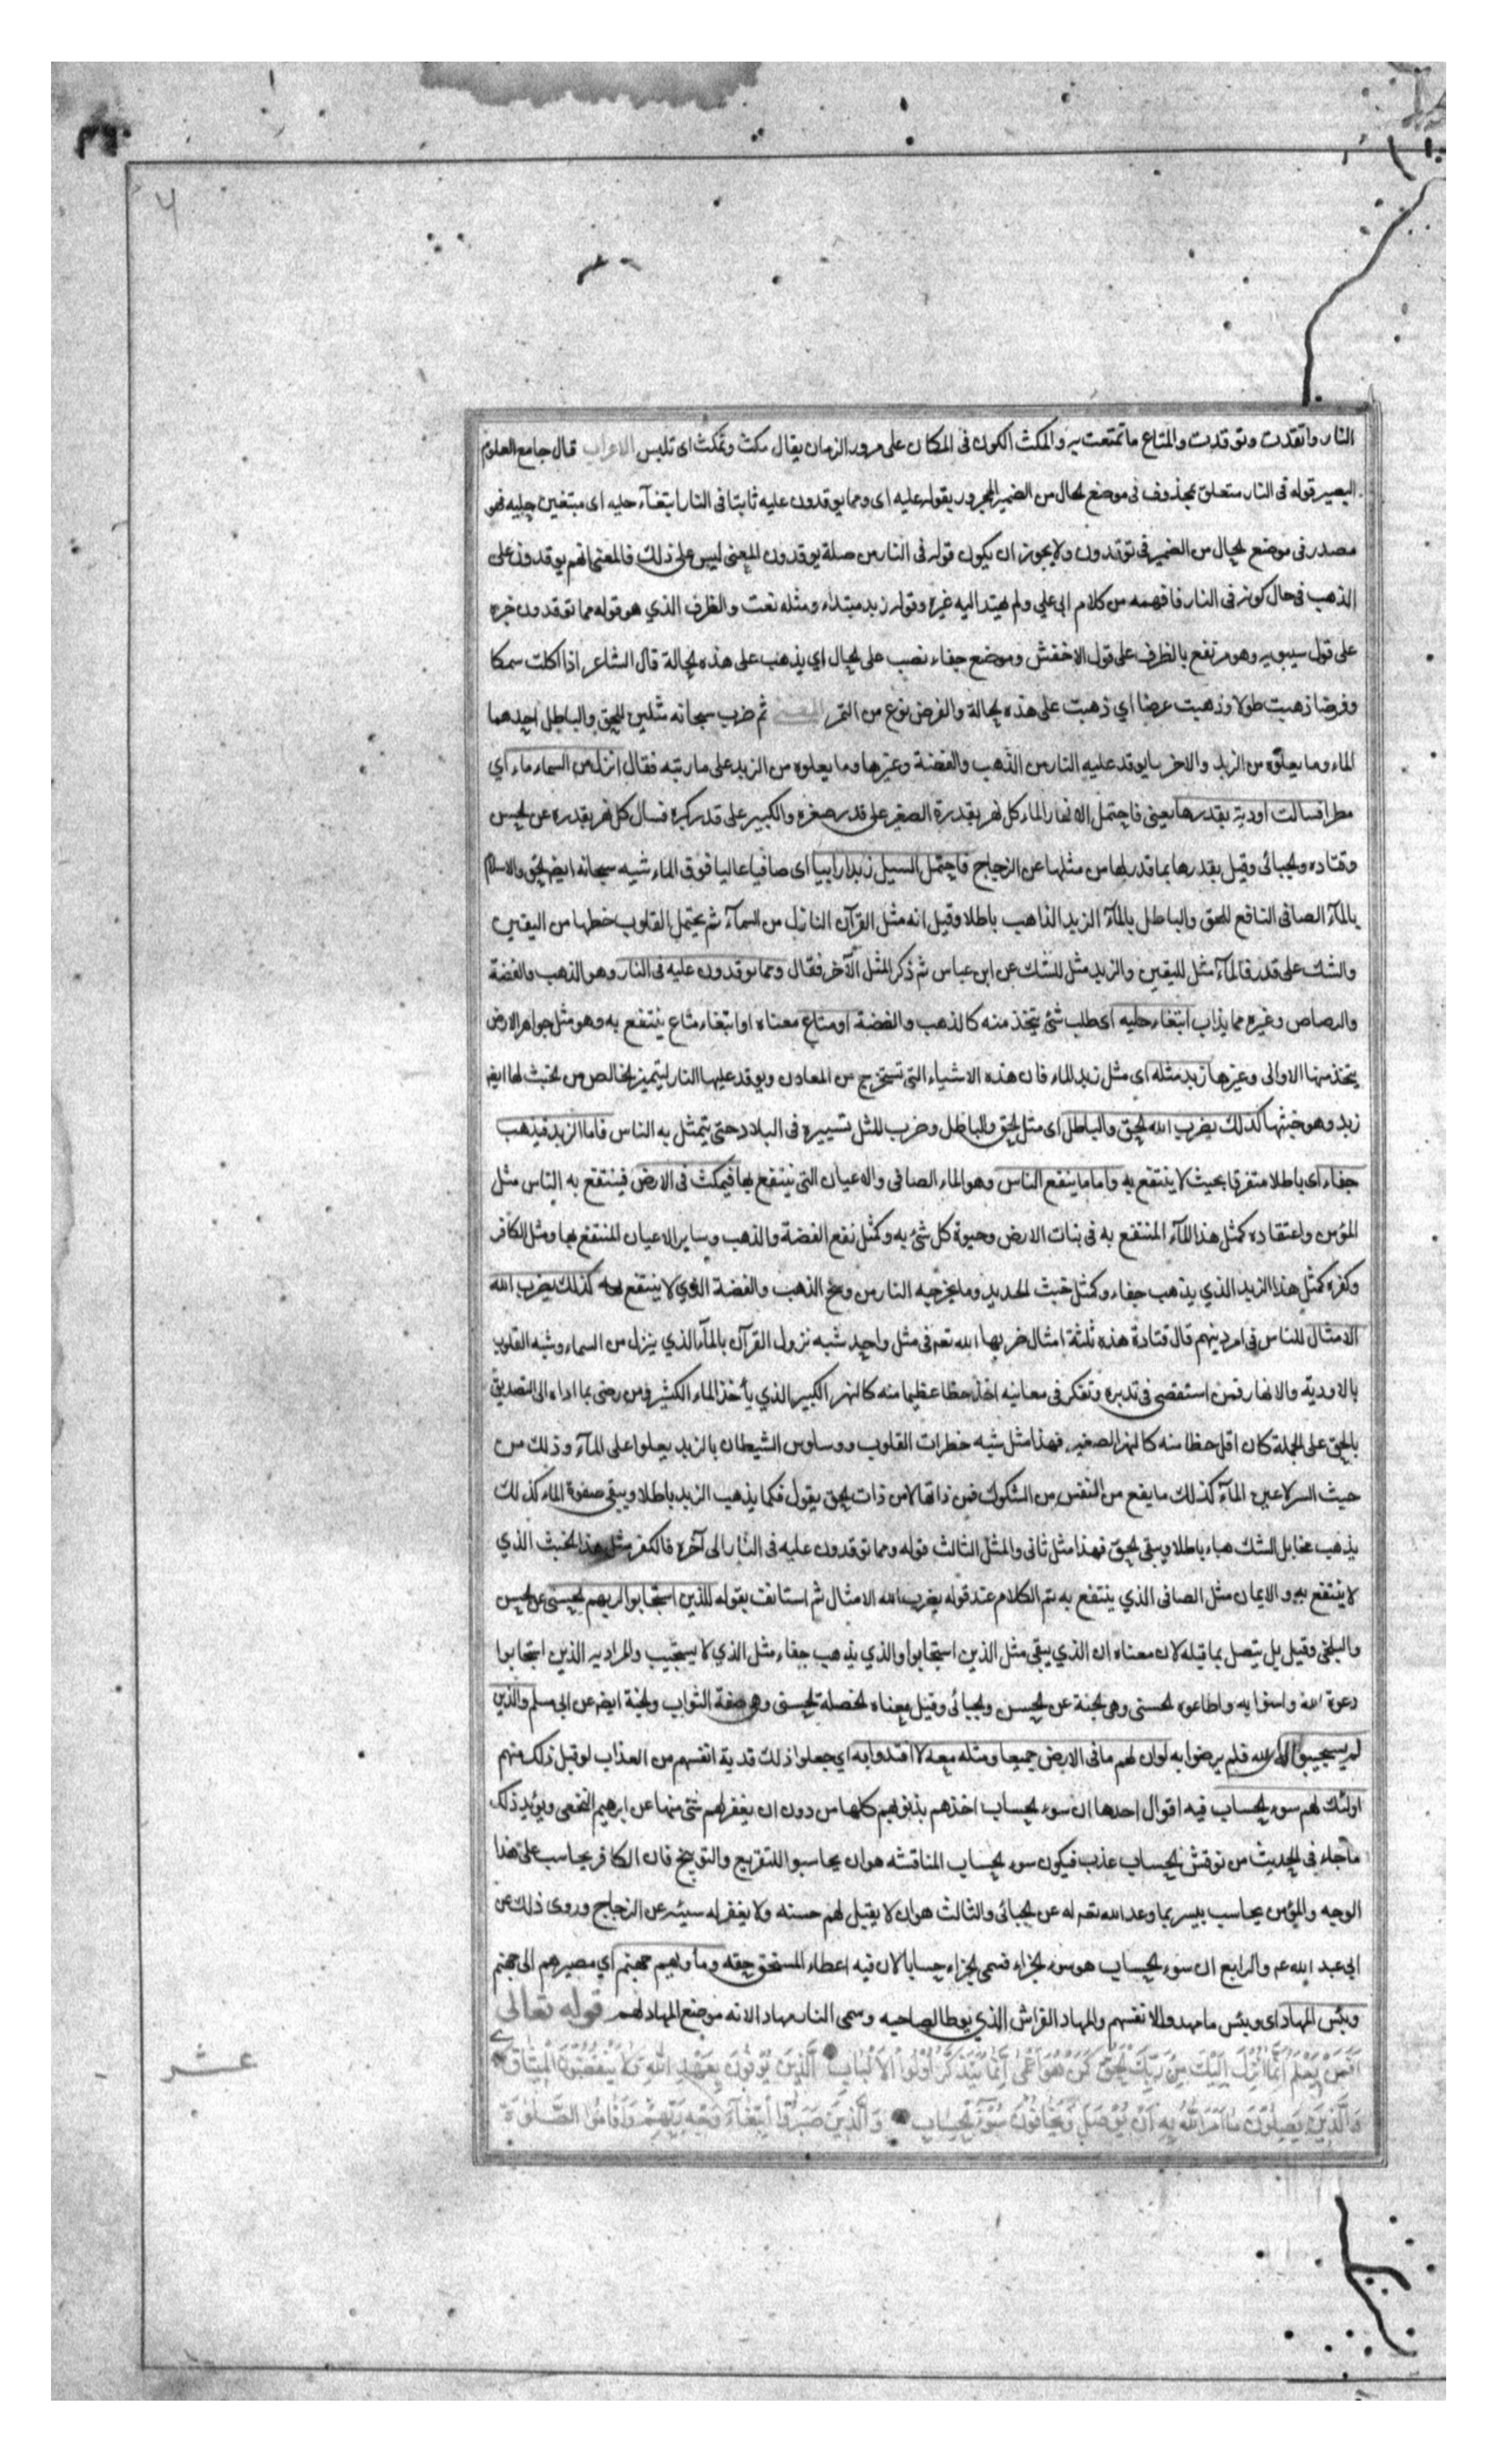 النار واتقدت وتوقدت والمتاع ما تمتعت به والمكث الكون فى المكان على مرور الزمان يقال مكث وتمكث اى تلبس الاعراب قال جامع العلوم
البصير قوله فى النار متعلق بمحذوف فى موضع الحال من الضمير المجرور بقوله عليه اى ومما يوقدون عليه ثابتا فى النار ابتغآء حليه اى مبتغين حليه فهو
مصدر فى موضع الحال من الضمير فى توقدون ولا يجوز ان يكون قوله فى النار من صلة يوقدون المعنى ليس على ذلك فالمعنى انهم يوقدون على
الذهب فى حال كونه فى النار فافهمه من كلام ابى علي ولم يهتد اليه غيره وقوله زبد مبتداء ومثله نعت والظرف الذي هو قوله مما توقدون خبره
على قول سيبويه وهو مرتفع بالظرف على قول الاخفش وموضع جفاء نصب على الحال اي يذهب على هذه الحالة قال الشاعر اذا اكلت سمكا
وفرضا ذهبت طولا وذهبت عرضا اي ذهبت على هذه الحالة والفرض نوع من التمر المعنى ثم ضرب سبحانه مثلين للحق والباطل احدهما
الماء وما يعلوه من الزبد والاخر ما يوقد عليه النار من الذهب والفضة وغيرها وما يعلوه من الزبد على ما رتبه فقال انزل من السماء ماء اي
مطرا فسالت اودية بقدرها يعنى فاحتمل الانهار الماء كل نهر بقدرة الصغير على قدر صغره والكبير على قدر كبره فسال كل نهر بقدره عن الحسن
وقتاده والجبائى وقيل بقدرها بما قدر لها من مثلها عن الزجاج فاحتمل السيل زبدا رابيا اى صافيا عاليا فوق الماء شبه سبحانه ايضا الحق والاسلام
بالمآء الصافى النافع للحق والباطل بالمآء الزبد الذاهب باطلا وقيل انه مثل القرآن النازل من السمآء ثم يحتمل القلوب حظها من اليقين
والشك على قدر فالمآء مثل لليقين والزبد مثل للشك عن ابن عباس ثم ذكر المثل الآخر فقال ومما توقدون عليه فى النار وهو الذهب والفضة
والرصاص وغيره مما يذاب ابتغاء حليه اى طلب شئ يتخذ منه كالذهب والفضة او متاع معناه او ابتغاء متاع ينتفع به وهو مثل جواهر الارض
يتخذ منها الاوانى وغيرها زبد مثله اي مثل زبد الماء فان هذه الاشياء التى تستخرج من المعادن ويوقد عليها النار ليتميز الخالص من الخبث لها ايضا
زبد وهو خبثها كذلك يضرب الله الحق والباطل اى مثل الحق والباطل وضرب المثل تسييره فى البلاد حتى يتمثل به الناس فاما الزبد فيذهب
جفاء اى باطلا متفرقا بحيث لا ينتفع به واما ما ينفع الناس وهو الماء الصافى والاعيان التى ينتفع بها فيمكث فى الارض فينتفع به الناس مثل
المؤمن واعتقاده كمثل هذا المآء المنتفع به فى نبات الارض وحيوة كل شئ به وكمثل نفع الفضة والذهب وساير الاعيان المنتفع بها ومثل الكافر
وكفره كمثل هذا الزبد الذي يذهب جفاء وكمثل خبث الحديد وما يخرجه النار من وسخ الذهب والفضة الذي لا ينتفع به كذلك يضرب الله
الامثال للناس فى امر دينهم قال قتادة هذه ثلثة امثال ضربها الله تعه فى مثل واحد شبه نزول القرآن بالمآء الذي ينزل من السماء وشبه القلوب
بالاودية والانهار فمن استقصى فى تدبره وتفكر فى معانيه اخذ حظا عظيما منه كالنهر الكبير الذي يأخذ الماء الكثير ومن رضى بما اداه الى التصديق
بالحق على الجملة كان اقل حظا منه كالنهر الصغير فهذا مثل شبه خطرات القلوب ووساوس الشيطان بالزبد يعلوا على المآء وذلك من
حيث السر لا عين المآء كذلك ما يقع من النفس من الشكوك فمن ذاتها لا من ذات الحق يقول فكما يذهب الزبد باطلا ويبقى صفوة الماء كذلك
يذهب مخايل الشك هباء باطلا ويبقى الحق فهذا مثل ثانى والمثل الثالث قوله ومما توقدون عليه فى النار الى آخره فالكفر مثل هذا الخبث الذي
لا ينتفع به والايمان مثل الصافى الذي ينتفع به تم الكلام عند قوله يضرب الله الامثال ثم استانف بقوله للذين استجابوا لربهم الحسنى عن الحسن
والبلخى وقيل بل يتصل بما قبله لان معناه ان الذي يبقى مثل الذين استجابوا والذي يذهب جفاء مثل الذي لا يستجيب والمراد به الذين استجابوا
دعوة الله وامنوا به واطاعوه الحسنى وهى الجنة عن الحسن والجبائى وقيل معناه الخصلة الحسنى وهى صفة الثواب والجنة ايضا عن ابى مسلم والذين
لم يستجيبوا له اي لله فلم يرضوا به لو ان لهم ما فى الارض جميعا ومثله معه لافتدوا به اي جعلوا ذلك فدية انفسهم من العذاب لو قبل ذلك منهم
اولئك لهم سوء الحساب فيه اقوال احدها ان سوء الحساب اخذهم بذنوبهم كلها من دون ان يغفر لهم شئ منها عن ابرهيم النخعى ويؤيد ذلك
ما جاء فى الحديث من نوقش الحساب عذب فيكون سوء الحساب المناقشه هو ان يحاسبوا للتقريع والتوبيخ فان الكافر يحاسب على هذا
الوجه والمؤمن يحاسب ليسر بما وعد الله تعه له عن الجبائى والثالث هو ان لا يقبل لهم حسنه ولا يغفر له سيئه عن الزجاج وروى ذلك عن
ابى عبد الله عه والرابع ان سوء الحساب هو سوء الجزاء فسمى الجزاء حسابا لان فيه اعطاء المستحق حقه وماويهم جهنم اي مصيرهم الى جهنم
وبئس المهاد اى وبئس ما مهدوا لانفسهم والمهاد الفراش الذي يوطا لصاحبه وسمى النار مهادا لانه موضع المهاد لهم قوله تعالى
اَفَمَنْ يَعْلَمُ اَنَّمَا اُنْزِلَ اِلَيْكَ مِنْ رَبِّكَ الْحَقُّ كَمَنْ هُوَ اَعْمٰى اِنَّمَا يَتَذَكَّرُ اُولُوا الْاَلْبَابِ الَّذِينَ يُوفُونَ بِعَهْدِ اللهِ وَلَا يَنْقُضُونَ الْمِيثَاقَ
وَالَّذِينَ يَصِلُونَ مَا اَمَرَ اللهُ بِهِ اَنْ يُوصَلَ وَيَخَافُونَ سُوءَ الْحِسَابِ وَالَّذِينَ صَبَرُوا ابْتِغَآءَ وَجْهِ رَبِّهِمْ وَاَقَامُوا الصَّلٰوةَ
عشر